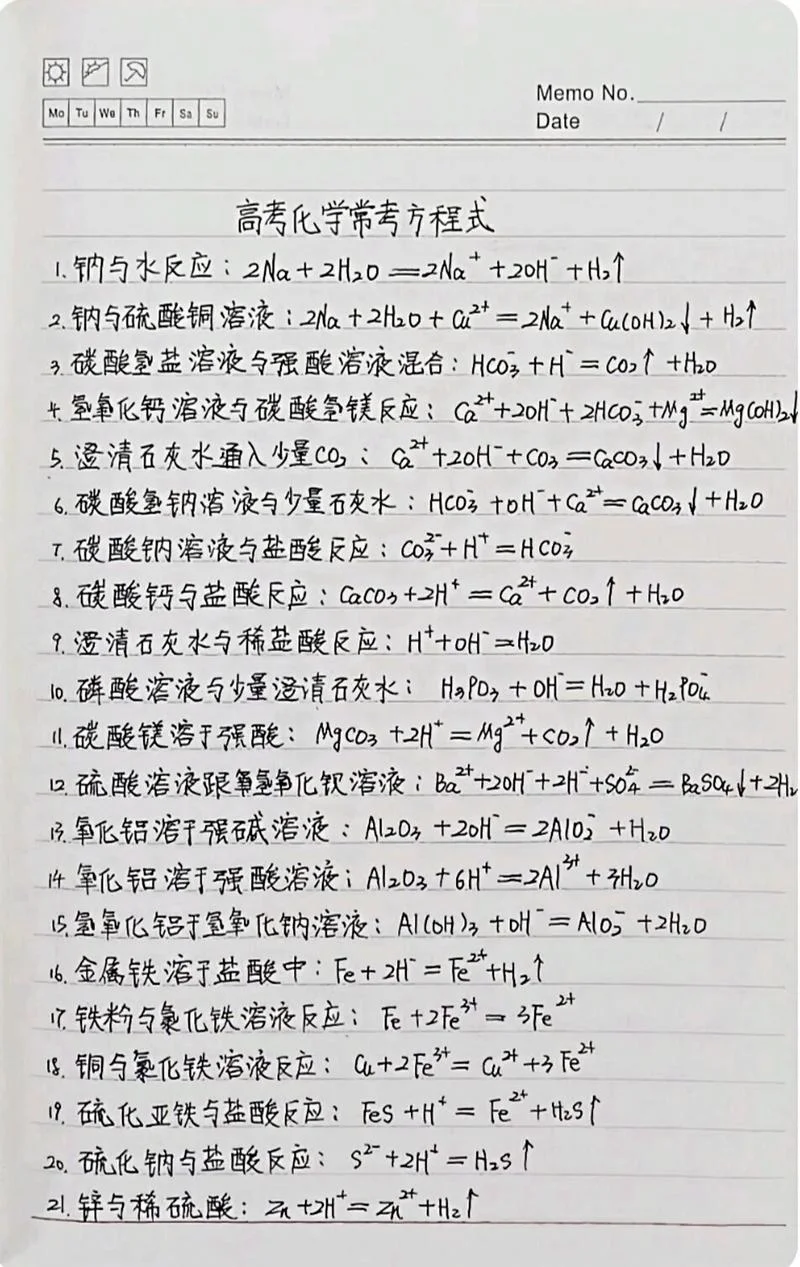 Memo No.
Mo Tu We Th Fr Sa Su
Date / /
高考化学常考方程式
1. 钠与水反应：2Na+2H₂O══2Na⁺+2OH⁻+H₂↑
2. 钠与硫酸铜溶液：2Na+2H₂O+Cu²⁺=2Na⁺+Cu(OH)₂↓+H₂↑
3. 碳酸氢盐溶液与强酸溶液混合：HCO₃⁻+H⁻=CO₂↑+H₂O
4. 氢氧化钙溶液与碳酸氢镁反应：Ca²⁺+2OH⁻+2HCO₃⁻+Mg²⁺=Mg(OH)₂↓
5. 澄清石灰水通入少量CO₂：Ca²⁺+2OH⁻+CO₃=CaCO₃↓+H₂O
6. 碳酸氢钠溶液与少量石灰水：HCO₃⁻+OH⁻+Ca²⁺=CaCO₃↓+H₂O
7. 碳酸钠溶液与盐酸反应：CO₃²⁻+H⁺=HCO₃⁻
8. 碳酸钙与盐酸反应：CaCO₃+2H⁺=Ca²⁺+CO₂↑+H₂O
9. 澄清石灰水与稀盐酸反应：H⁺+OH⁻=H₂O
10. 磷酸溶液与少量澄清石灰水：H₃PO₃+OH⁻=H₂O+H₂PO₄⁻
11. 碳酸镁溶于强酸：MgCO₃+2H⁺=Mg²⁺+CO₂↑+H₂O
12. 硫酸溶液跟氢氧化钡溶液：Ba²⁺+2OH⁻+2H⁺+SO₄²⁻=BaSO₄↓+2H₂
13. 氧化铝溶于强碱溶液：Al₂O₃+2OH⁻=2AlO₂⁻+H₂O
14. 氧化铝溶于强酸溶液：Al₂O₃+6H⁺=2Al³⁺+3H₂O
15. 氢氧化铝于氢氧化钠溶液：Al(OH)₃+OH⁻=AlO₂⁻+2H₂O
16. 金属铁溶于盐酸中：Fe+2H⁻=Fe²⁺+H₂↑
17. 铁粉与氯化铁溶液反应：Fe+2Fe³⁺=3Fe²⁺
18. 铜与氯化铁溶液反应：Cu+2Fe³⁺=Cu²⁺+3Fe²⁺
19. 硫化亚铁与盐酸反应：FeS+H⁺=Fe²⁺+H₂S↑
20. 硫化钠与盐酸反应：S²⁻+2H⁺=H₂S↑
21. 锌与稀硫酸：Zn+2H⁺=Zn²⁺+H₂↑